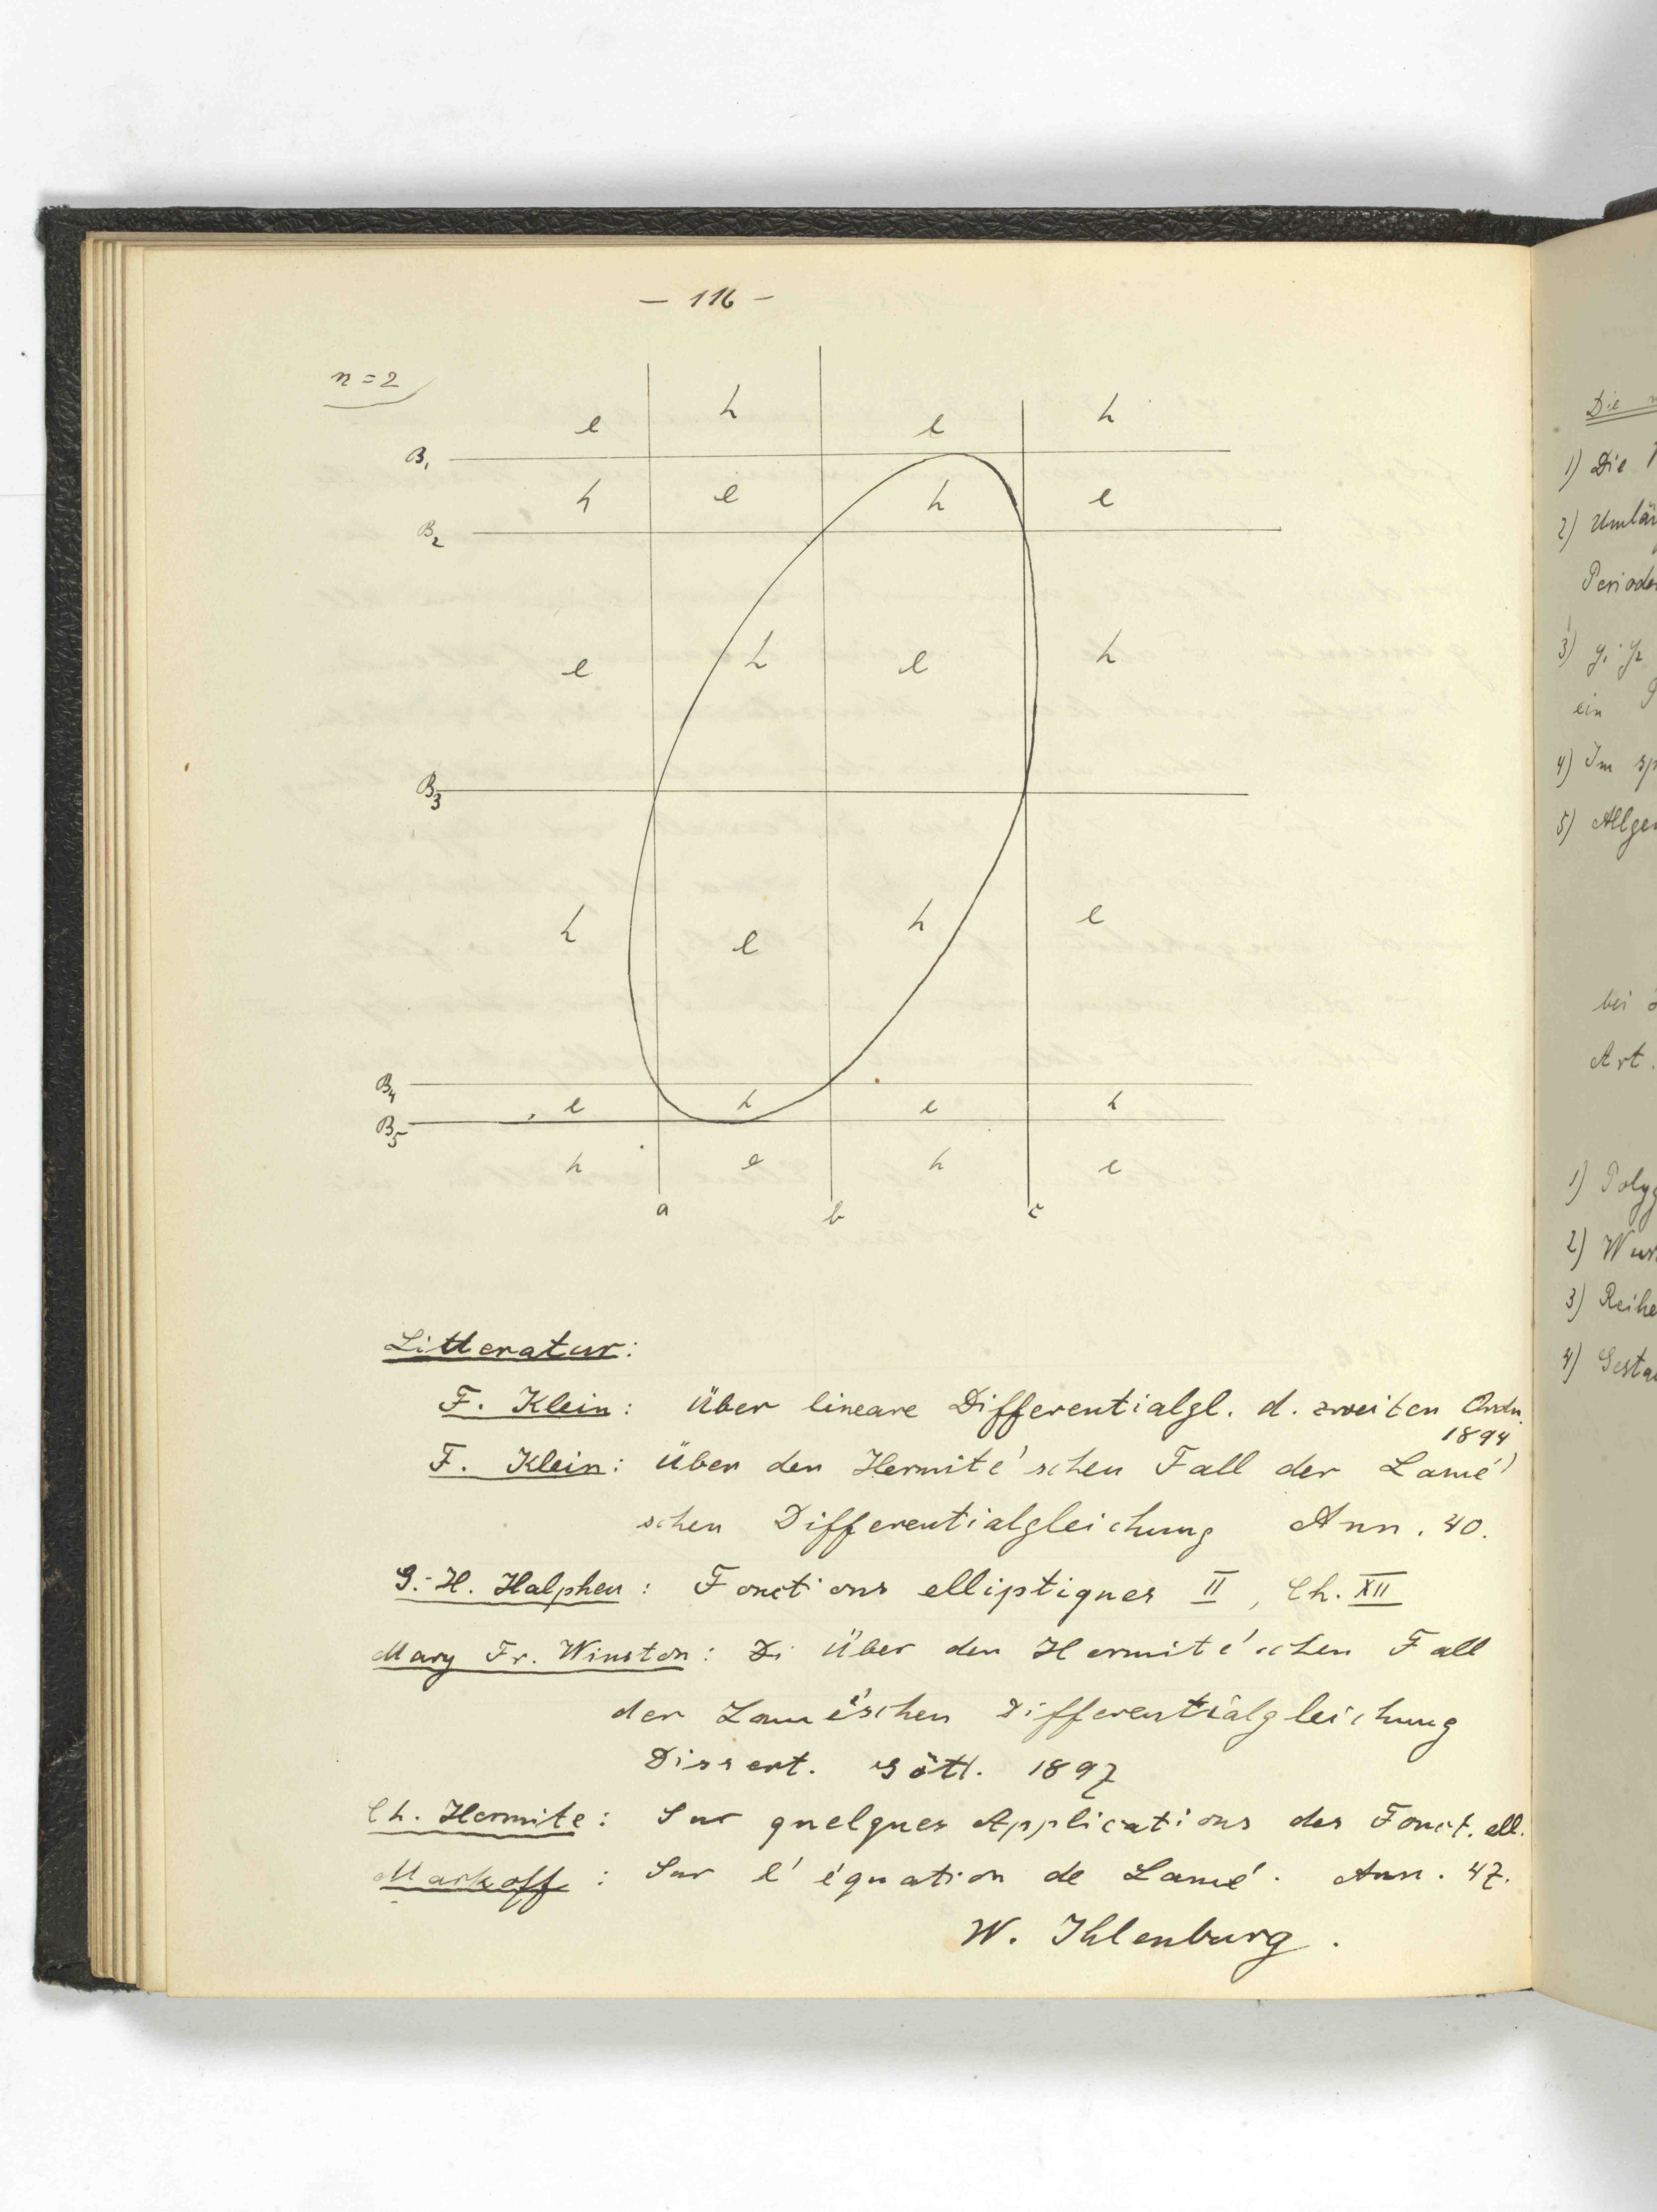 — 116 —
n = 2
e h e h
B₁
h e h e
B₂
e h e h
B₃
h e h e
B₄
e h e h
B₅
h e h e
a b c
Litteratur:
F. Klein: Über lineare Differentialgl. d. zweiten Ordn.
1894
F. Klein: Über den Hermité'schen Fall der Lamé'
schen Differentialgleichung Ann. 40.
G.-H. Halphen: Fonctions elliptiques II, Ch. XII
Mary Fr. Winston: Di Über den Hermité'schen Fall
der Lamé'schen Differentialgleichung
Dissert. Gött. 1897
Ch. Hermite: Sur quelques Applications des Fonct. ell.
Markoff: Sur l'équation de Lamé. Ann. 47.
W. Ihlenburg.
Die
1) Die
2) Umläu
Perioden
3) y₁ y₂
ein
4) Im sp
5) Allgem
bei
Art.
1) Polyg
2) Wur
3) Reihe
4) Gesta